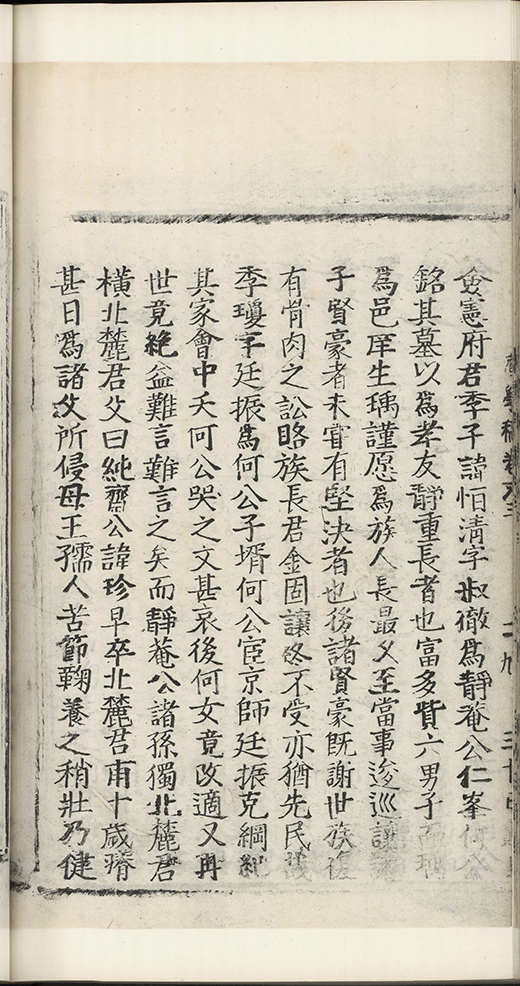 僉憲府君季子諱怕淸字叔徹爲靜菴公仁峯何公
銘其墓以爲孝友靜重長者也富多貲六男子而瑀
爲邑庠生瑀謹愿爲族人長最乆至當事逡巡讓諸
子賢豪者未甞有堅決者也後諸賢豪旣謝世族復
有骨肉之訟賂族長君金固讓終不受亦猶先民
季瓊字廷振爲何公子壻何公宦京師廷振克綱紀
其家會中夭何公哭之文甚哀後何女竟改適又再
世竟絶益難言難言之矣而靜菴公諸孫獨北麓君
橫北麓君父曰純齋公諱珍早卒北麓君甫十歲瘠
甚日爲諸父所侵母王孺人苦節鞠養之稍壯乃健